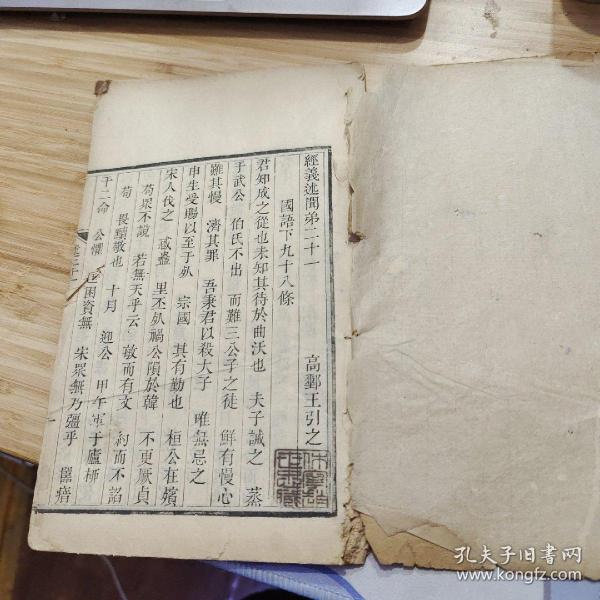 經義述聞弟二十一　高郵王引之
國語下九十八條
君知成之從也未知其待於曲沃也　夫子誡之　蒸
于武公　伯氏不出　而難三公子之徒　鮮有慢心
雖其慢　濟其罪　吾秉君以殺大子　唯無忌之
申生受賜以至于死　宗國　其有勤也　桓公在殯
宋人伐之　惑蠱　里丕死禍公隕於韓　不更厥貞
苟眾不說　若無天乎云　敬而有文　約而不諂
苟　畏黷敬也　十月　迎公　甲午軍于廬柳
十二命　公懼　困資無　宋眾無乃彊乎　嚚瘖
述二十一
一
孔夫子旧书网
www.kongfz.com